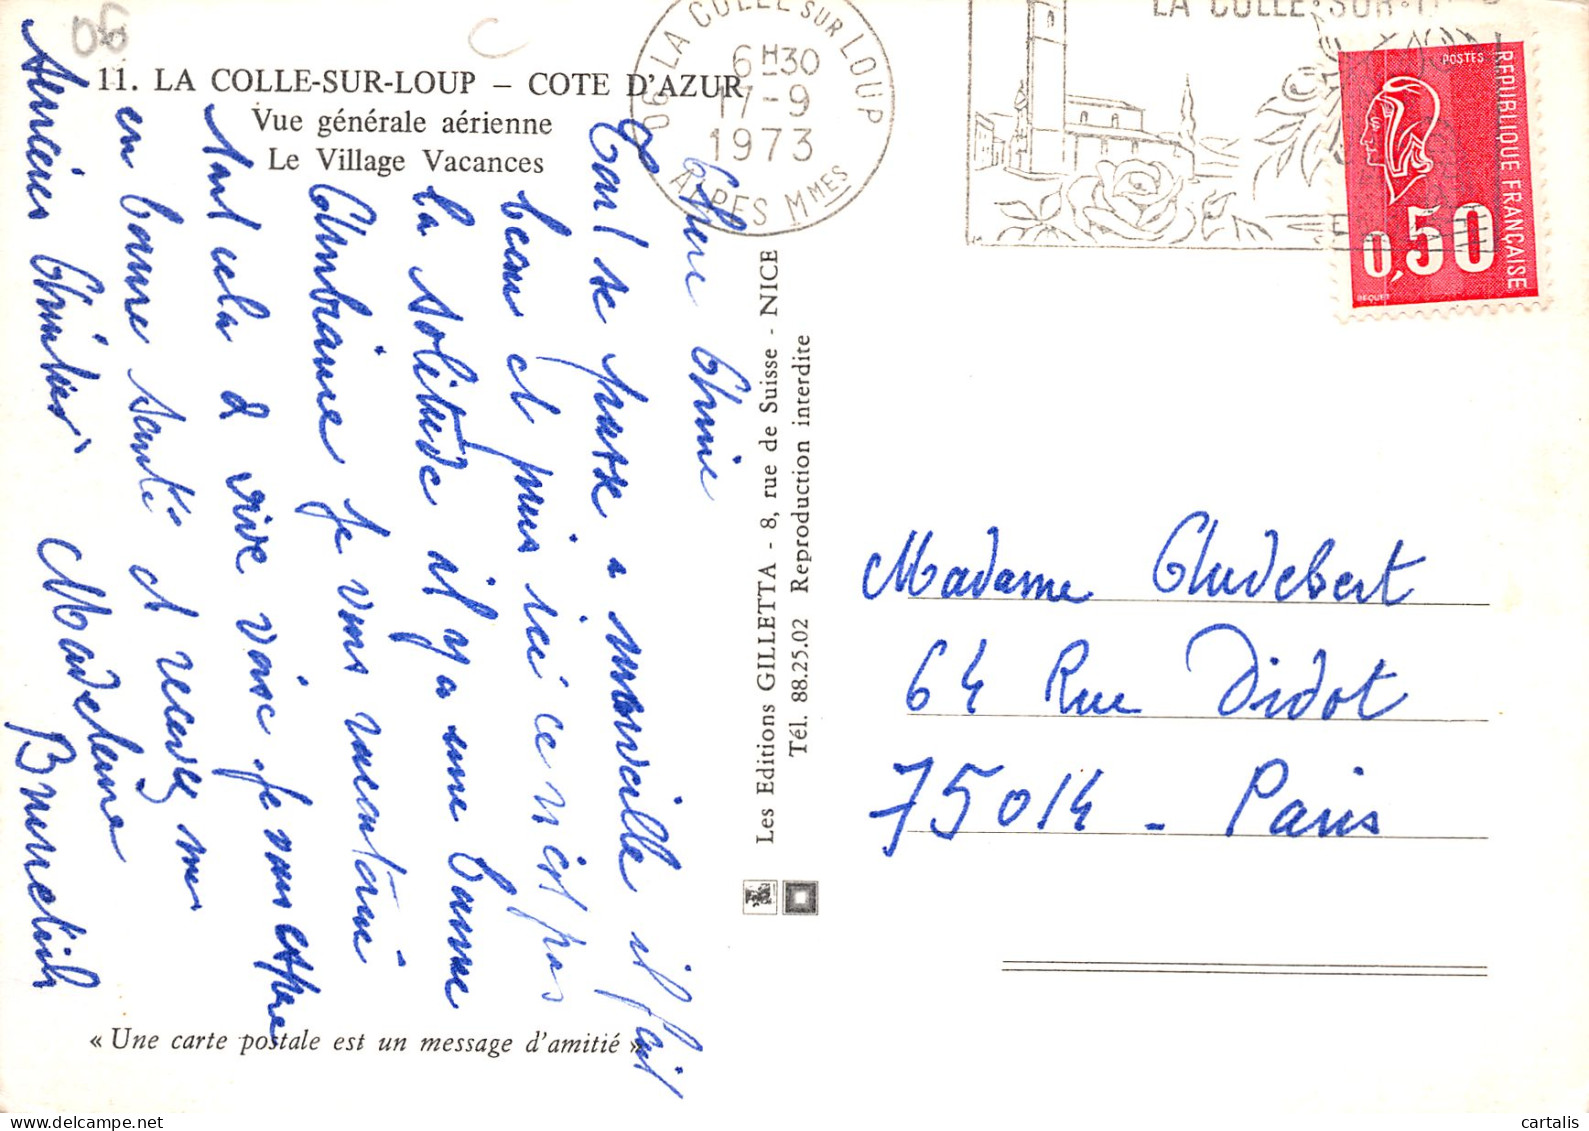 06
11. LA COLLE-SUR-LOUP – COTE D'AZUR
Vue générale aérienne
Le Village Vacances
06 LA COLLE SUR LOUP
6H30
17-9
1973
ALPES MMES
LA COLLE-SUR-
POSTES
REPUBLIQUE FRANÇAISE
0,50
BEQUET
Chère Amie
Tout se passe a merveille il fait
beau et puis ici ce n'est pas
la solitude il y a une bonne
ambiance je vous
tout cela de vive voix. Je vous espère
en bonne santé et recevez m
Madeleine
Les Editions GILLETTA - 8, rue de Suisse - NICE
Tél. 88.25.02 Reproduction interdite
Madame Audebert
64 Rue Didot
75014 - Paris
« Une carte postale est un message d'amitié »
cartalis